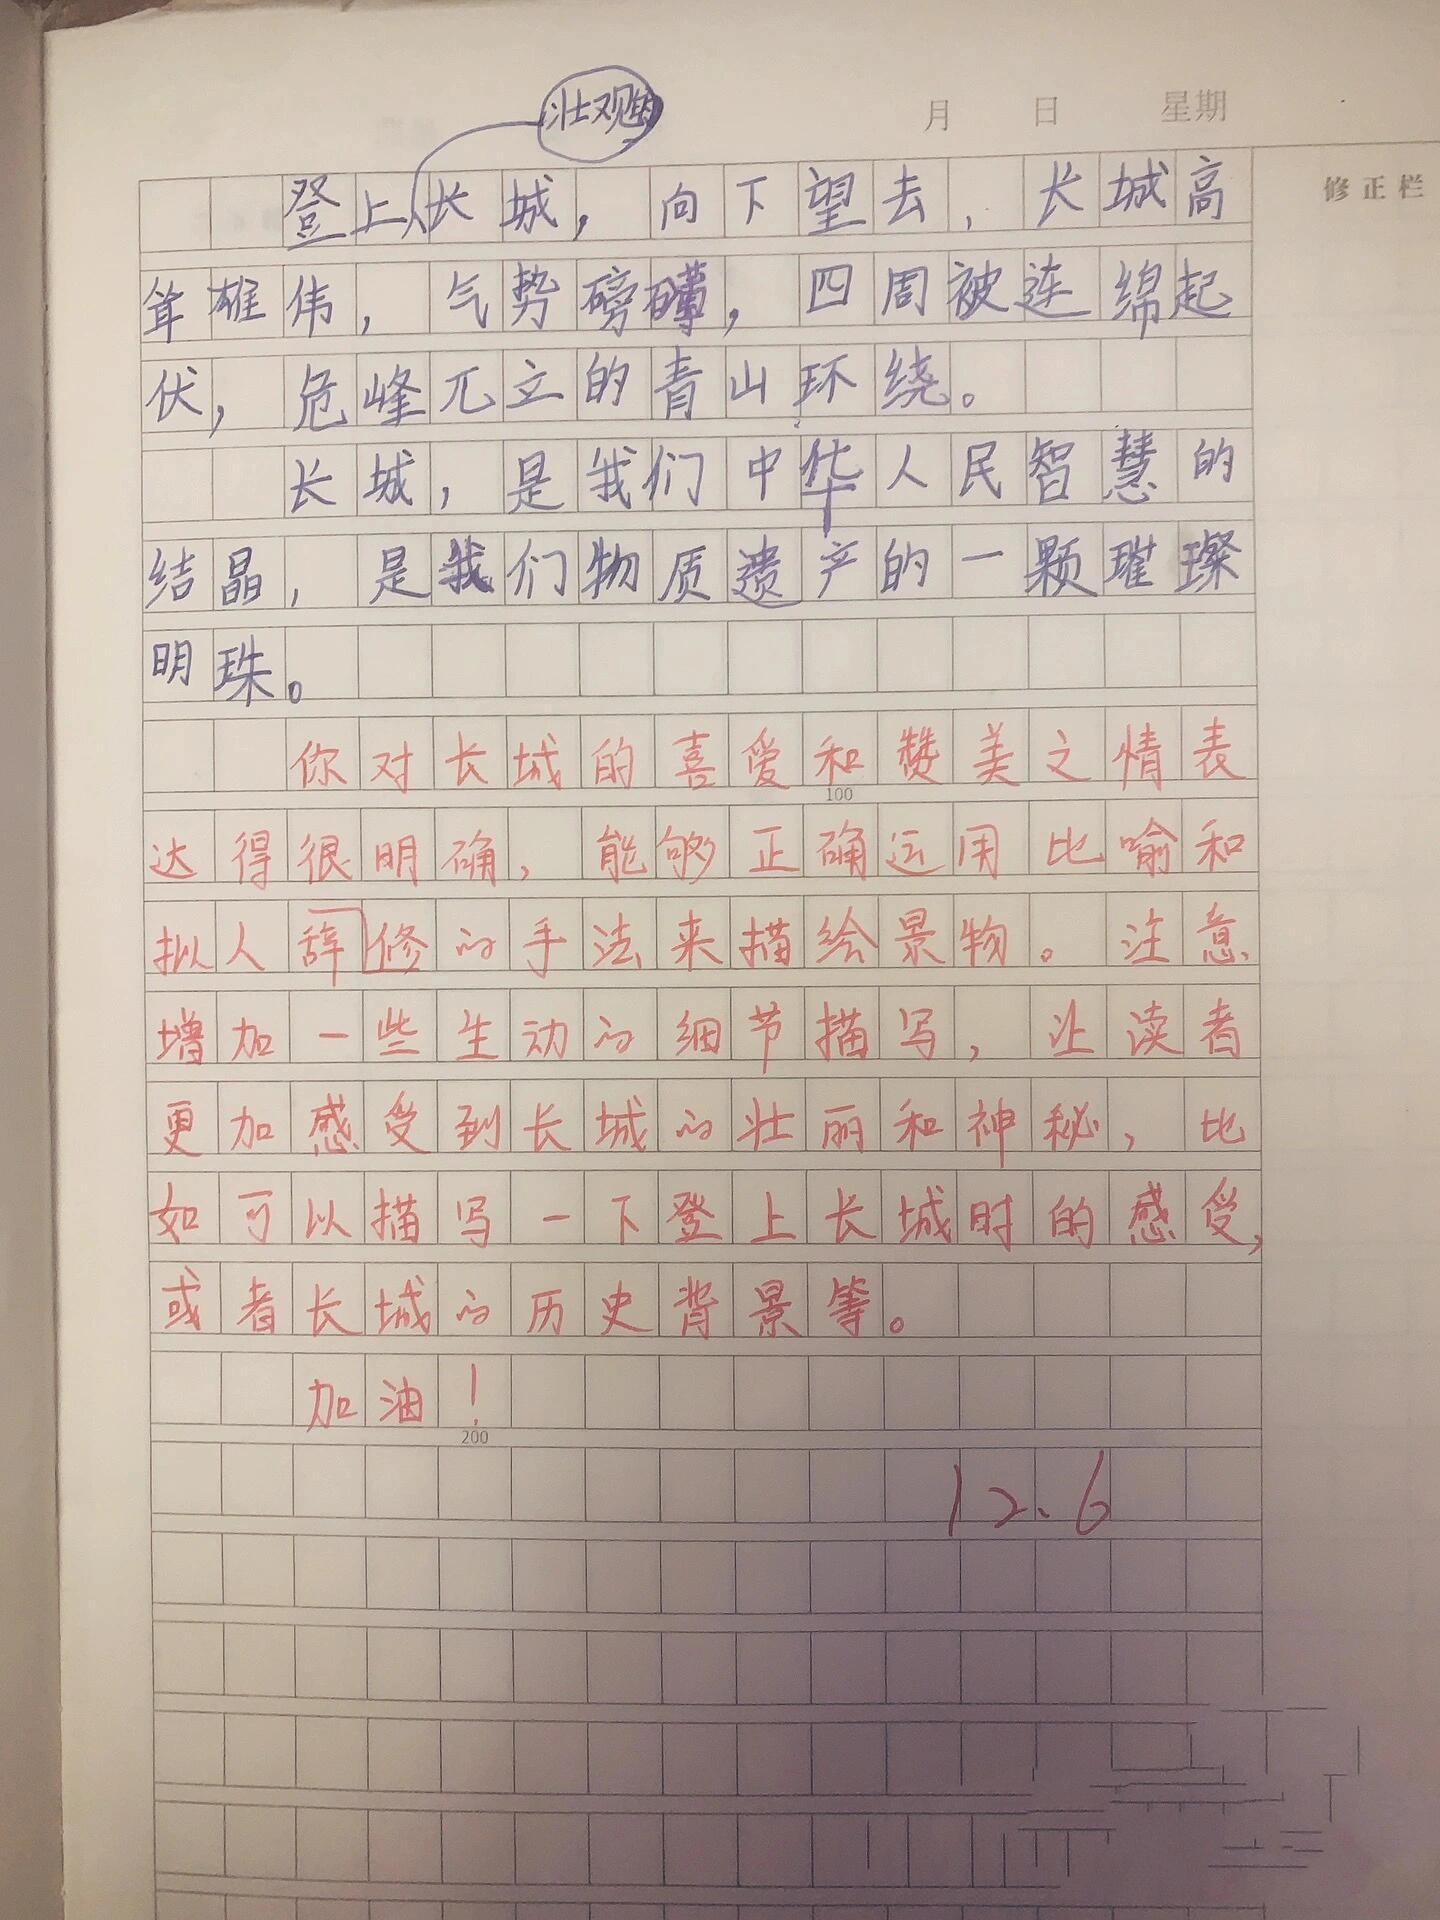 壮观的
月 日 星期
修正栏
登上长城，向下望去，长城高
耸雄伟，气势磅礴，四周被连绵起
伏，危峰兀立的青山环绕。
长城，是我们中华人民智慧的
结晶，是我们物质遗产的一颗璀璨
明珠。
你对长城的喜爱和赞美之情表
100
达得很明确，能够正确运用比喻和
拟人辞修的手法来描绘景物。注意
增加一些生动的细节描写，让读者
更加感受到长城的壮丽和神秘，比
如可以描写一下登上长城时的感受，
或者长城的历史背景等。
加油！
200
12.6